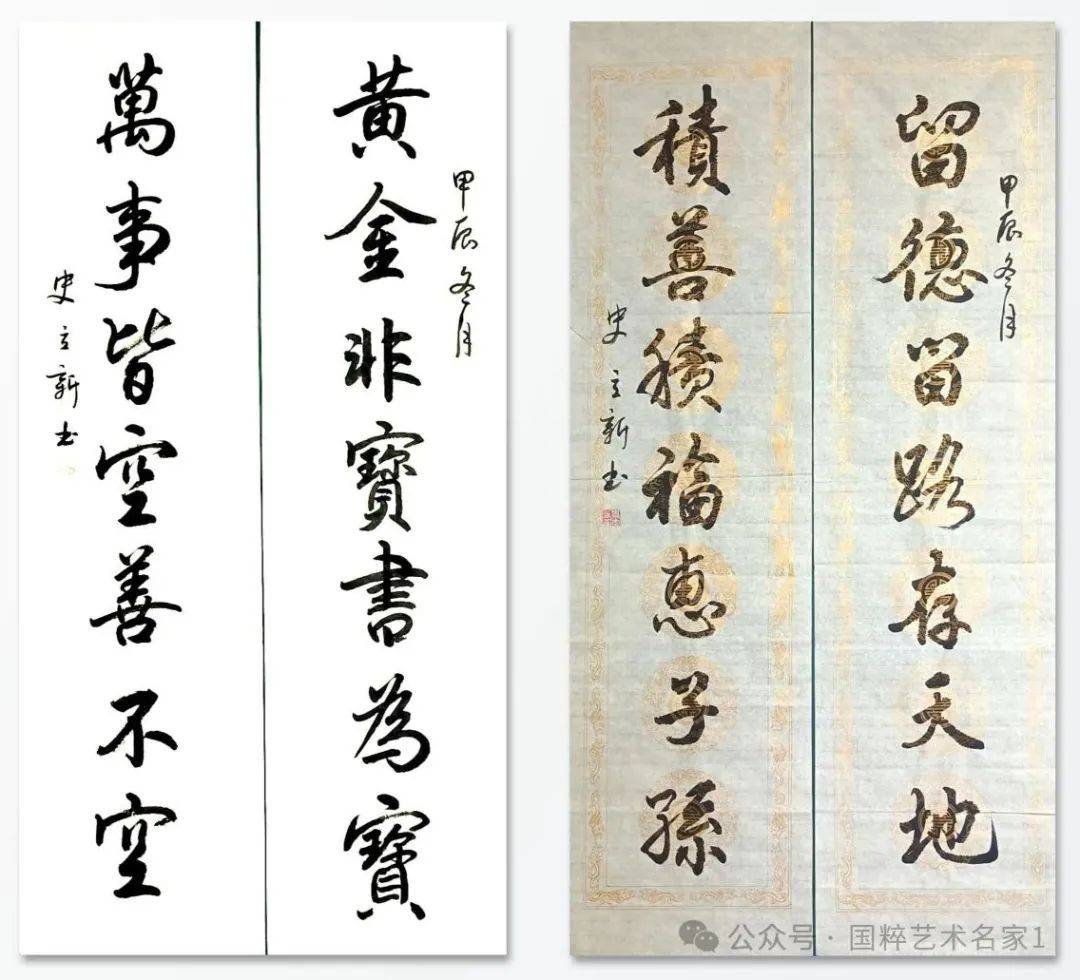 黄金非寶書為寶
甲辰冬月
萬事皆空善不空
史立新书
留德留路存天地
甲辰冬月
積善積福惠子孫
史立新书
公众号·国粹艺术名家1